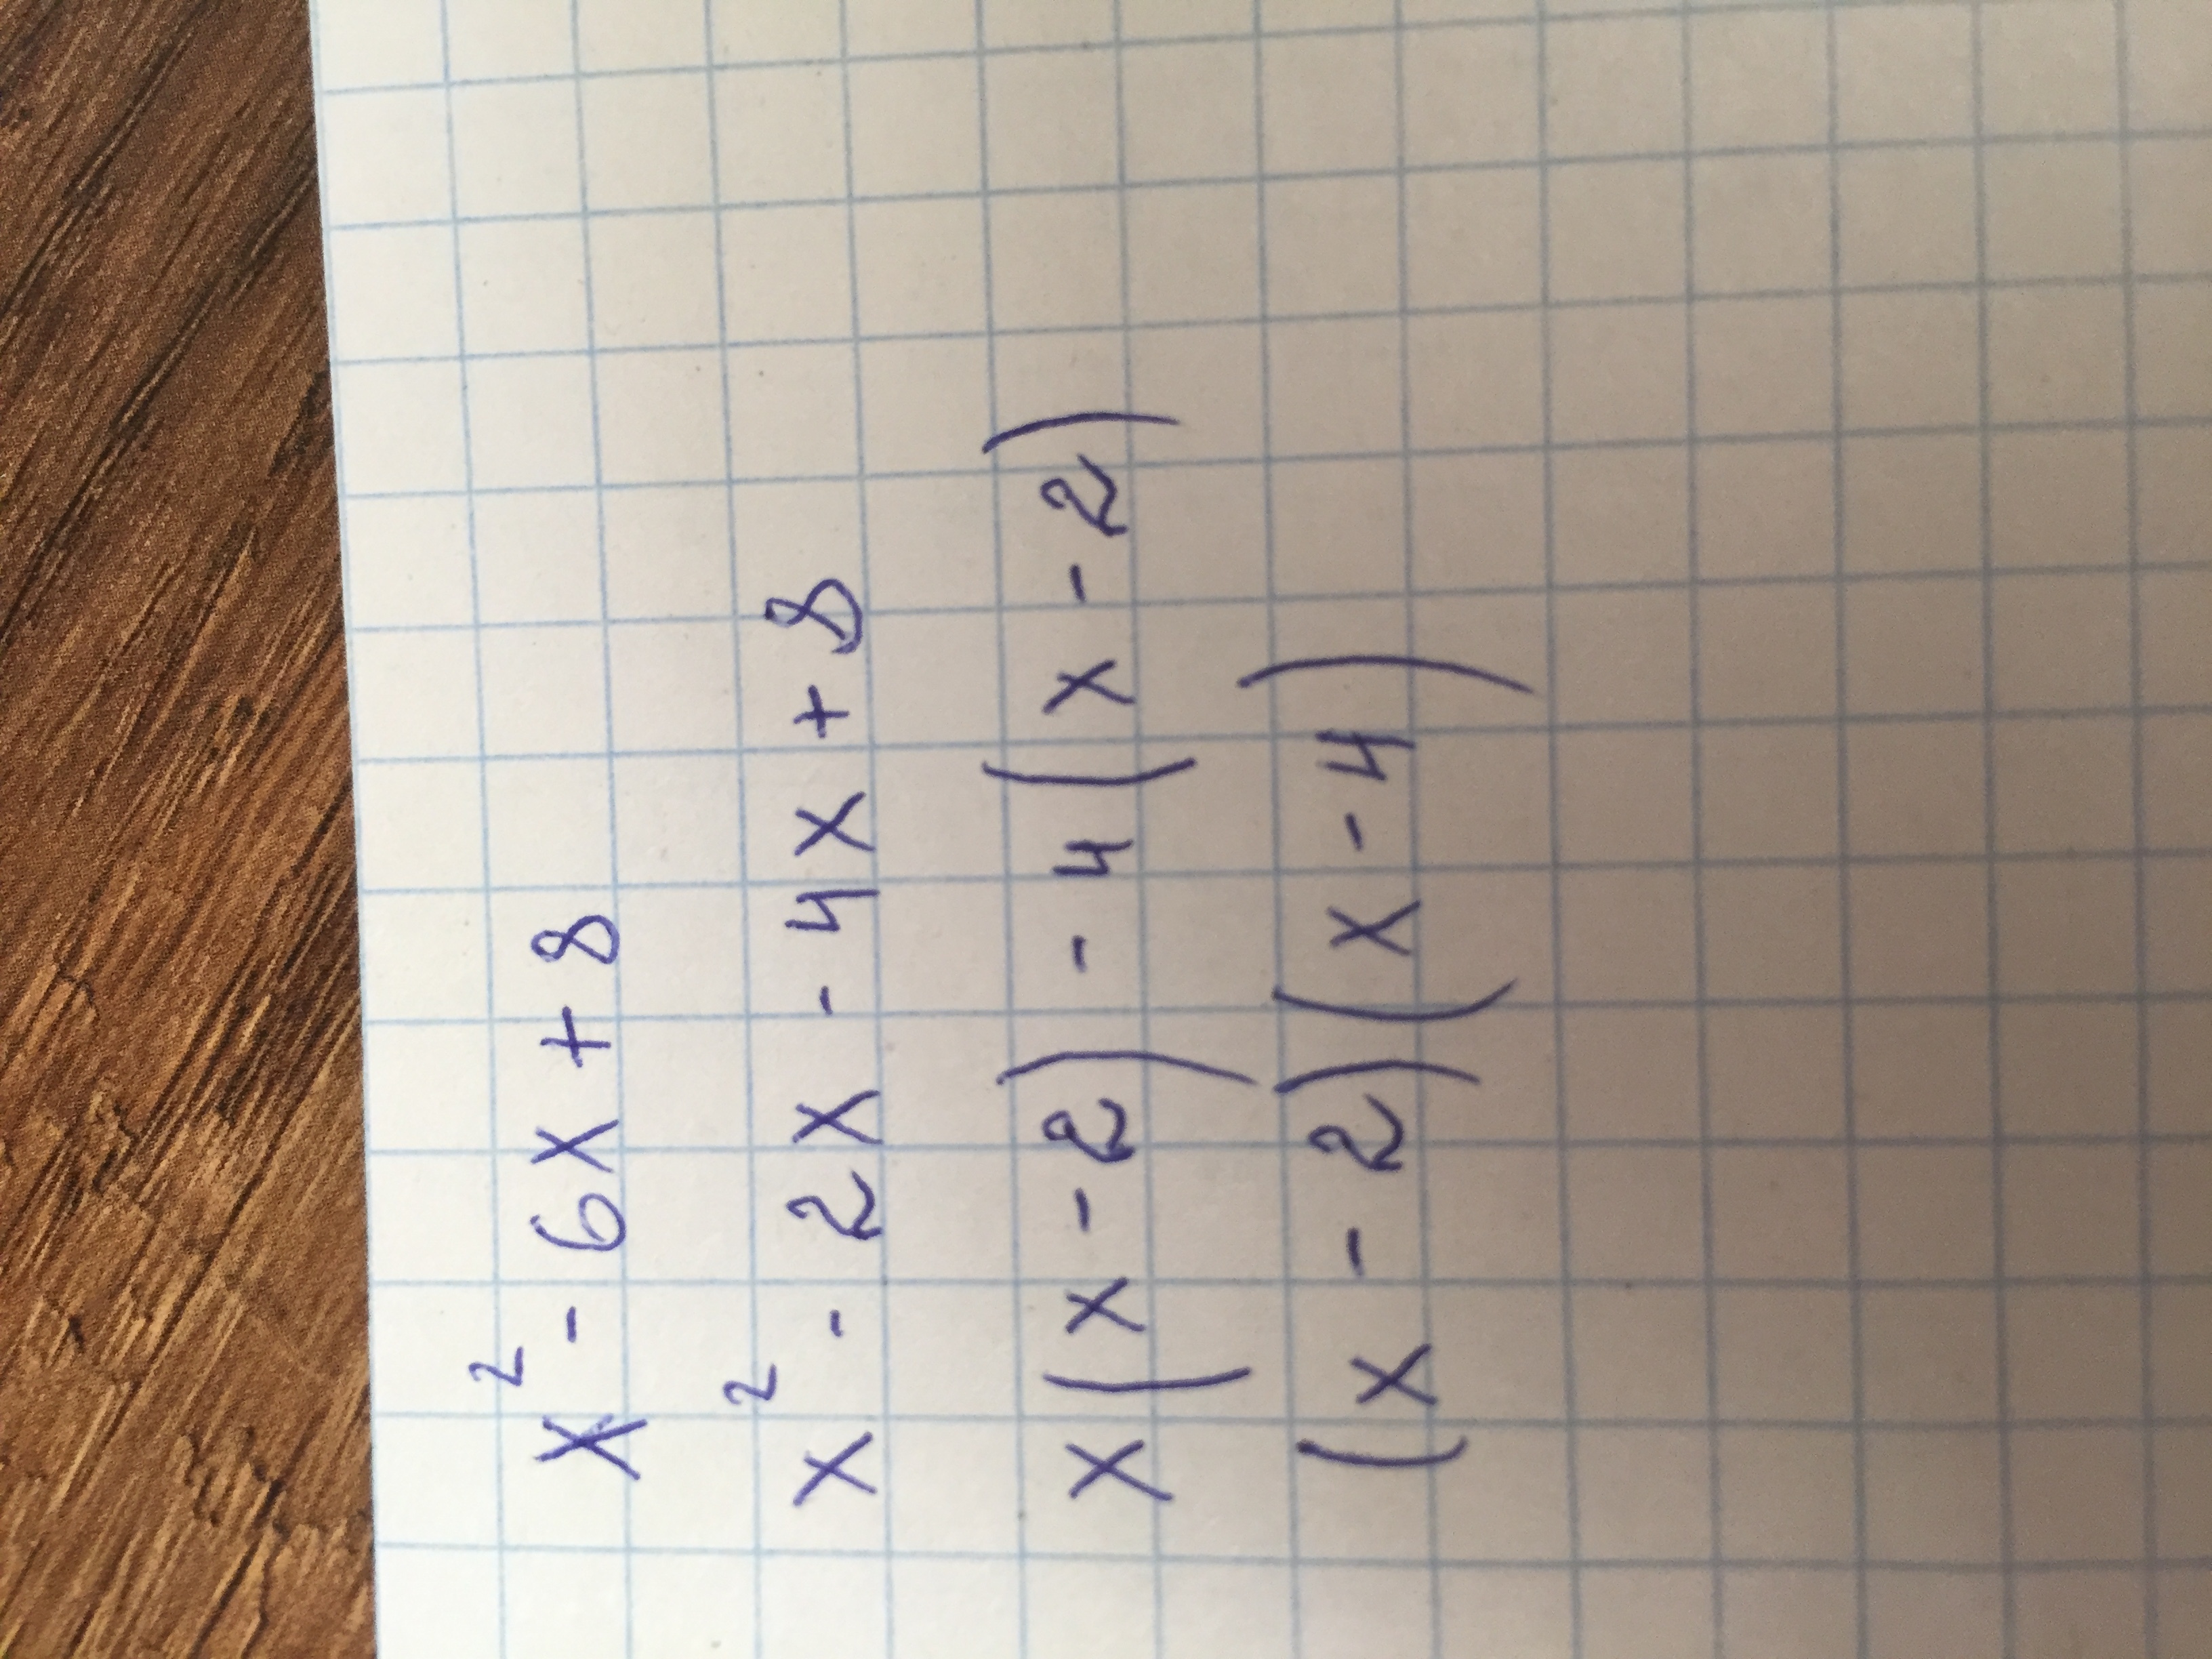 x² - 6x + 8
x² - 2x - 4x + 8
x(x - 2) - 4(x - 2)
(x - 2)(x - 4)